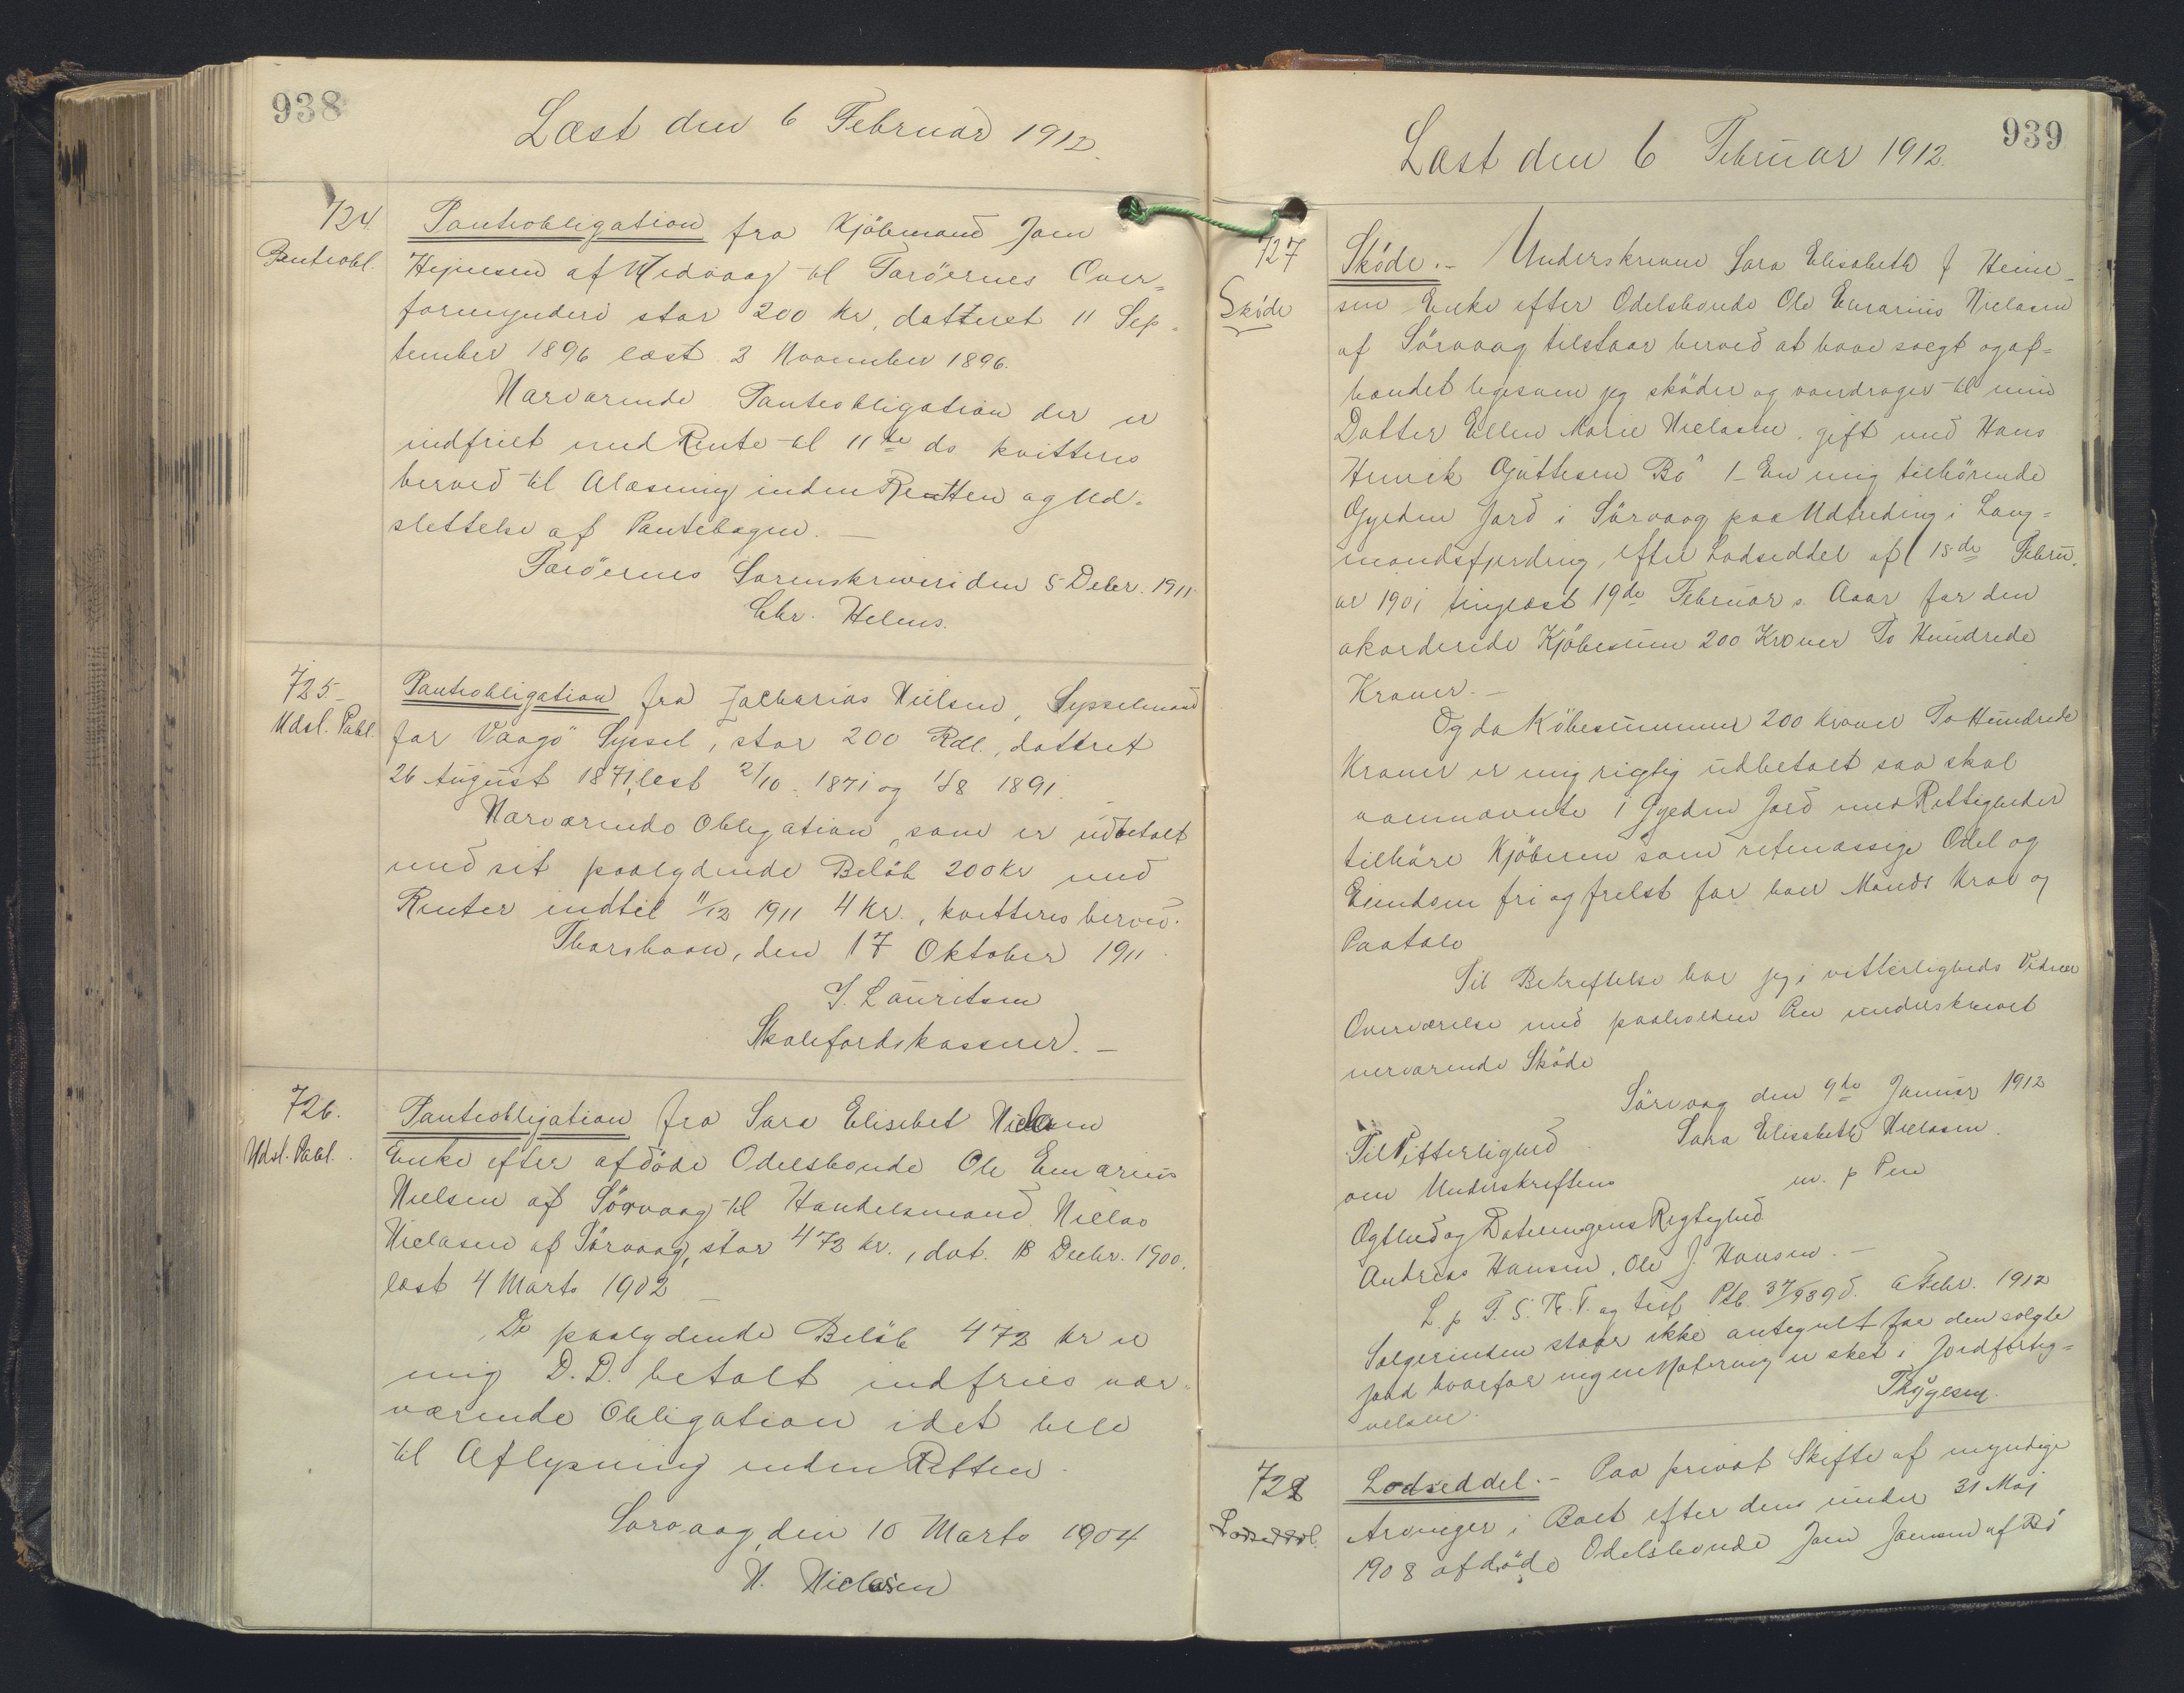 938
Læst den 6 Februar 1912.
724.
Panteobl.
Panteobligation fra Kjöbmand Joen
Hejnesen af Midvaag til Færöernes Over=
formynderi stor 200 Kr, datteret 11 Sep=
tember 1896 læst 3 November 1896.
Nærværende Panteobligation der er
indfriet med Rente til 11te ds kvitteres
herved til Aflæsning inden Retten og Ud=
slettelse af Pantebogen. —
Færöernes Sorenskriveri den 5 Decbr. 1911
Chr. Helms.
725.
Udsl. Pobl.
Panteobligation fra Zacharias Nielsen, Sysselmand
for Vaagö Syssel, stor 200 Rdl., dattret
26 August 1871, læst 2/10 1871 og 1/8 1891.
Nærværende Obligation, som er udbetalt
med sit paalydende Belöb 200 Kr med
Renter indtil 11/12 1911 4 Kr., kvitteres herved.
Thorshavn, den 17 Oktober 1911
J. Lauritsen
Skolefondskasserer. —
726.
Udsl. Pobl.
Panteobligation fra Sara Elisebet Niclasen
Enke efter afdöde Odelsbonde Ole Emarius
Nielsen af Sörvaag til Handelsmand Niclas
Niclasen af Sörvaag, stor 472 Kr., dat. 18 Decbr. 1900,
læst 4 Marts 1902 —
De paalydende Belöb 472 Kr er
mig D. D. betalt indfries nær=
værende Obligation idet hele
til Aflysning inden Retten.
Sorvaag, den 10 Marts 1904
N. Niclasen
939
Læst den 6 Februar 1912.
727
Sköde
Sköde. — Underskrevne Sara Elisabeth f Heine=
sen Enke efter Odelsbonde Ole Emarius Niclasen
af Sörvaag tilstaar herved at have solgt og af=
hændet ligesom jeg sköder og overdrager til min
Datter Ellen Marie Niclasen, gift med Hans
Henrik Guttesen Bö 1 – En mig tilhörende
Gylden Jord i Sörvaag paa Udtreding i Laug=
mandsfjerding, efter Lodseddel af 15de Febru=
ar 1901 tinglæst 19de Februar s. Aaar for den
akorderede Kjöbesum 200 Kroner To Hundrede
Kroner. —
Og da Köbesummen 200 Kroner To Hundrede
Kroner er mig rigtig udbetalt saa skal
ovennævnte 1 Gylden Jord med Rettigheder
tilhöre Kjöberen som retmæssige Odel og
Eiendom fri og frelst for hver Mands Krav og
Paatale
Til Bekræftelse har jeg i vitterligheds Vidner
Overværelse med paaholden Pen underskrevet
nerværende Sköde
Sörvaag den 9de Januar 1912
Sara Elisabeth Niclasen.
m. p Pen
Til Vitterlighed
om Underskriftens
Ægthed og Dateringens Rigtighed
Andreas Hansen, Ole J. Hansen. —
L. p F. S. Th. T. og tilf Ptb. 37/939 d. 6 Febr. 1912
Sælgerinden staar ikke antegnelt for den solgte
Jord hvorfor ingen Notering er sket i Jordforteg=
nelsen.
Trÿgesen.
728
Lodseddel.
Lodseddel. — Paa privat Skifte af myndige
Arvinger i Boet efter dens under 31 Maj
1908 afdöde Odelsbonde Joen Joensen af Bö